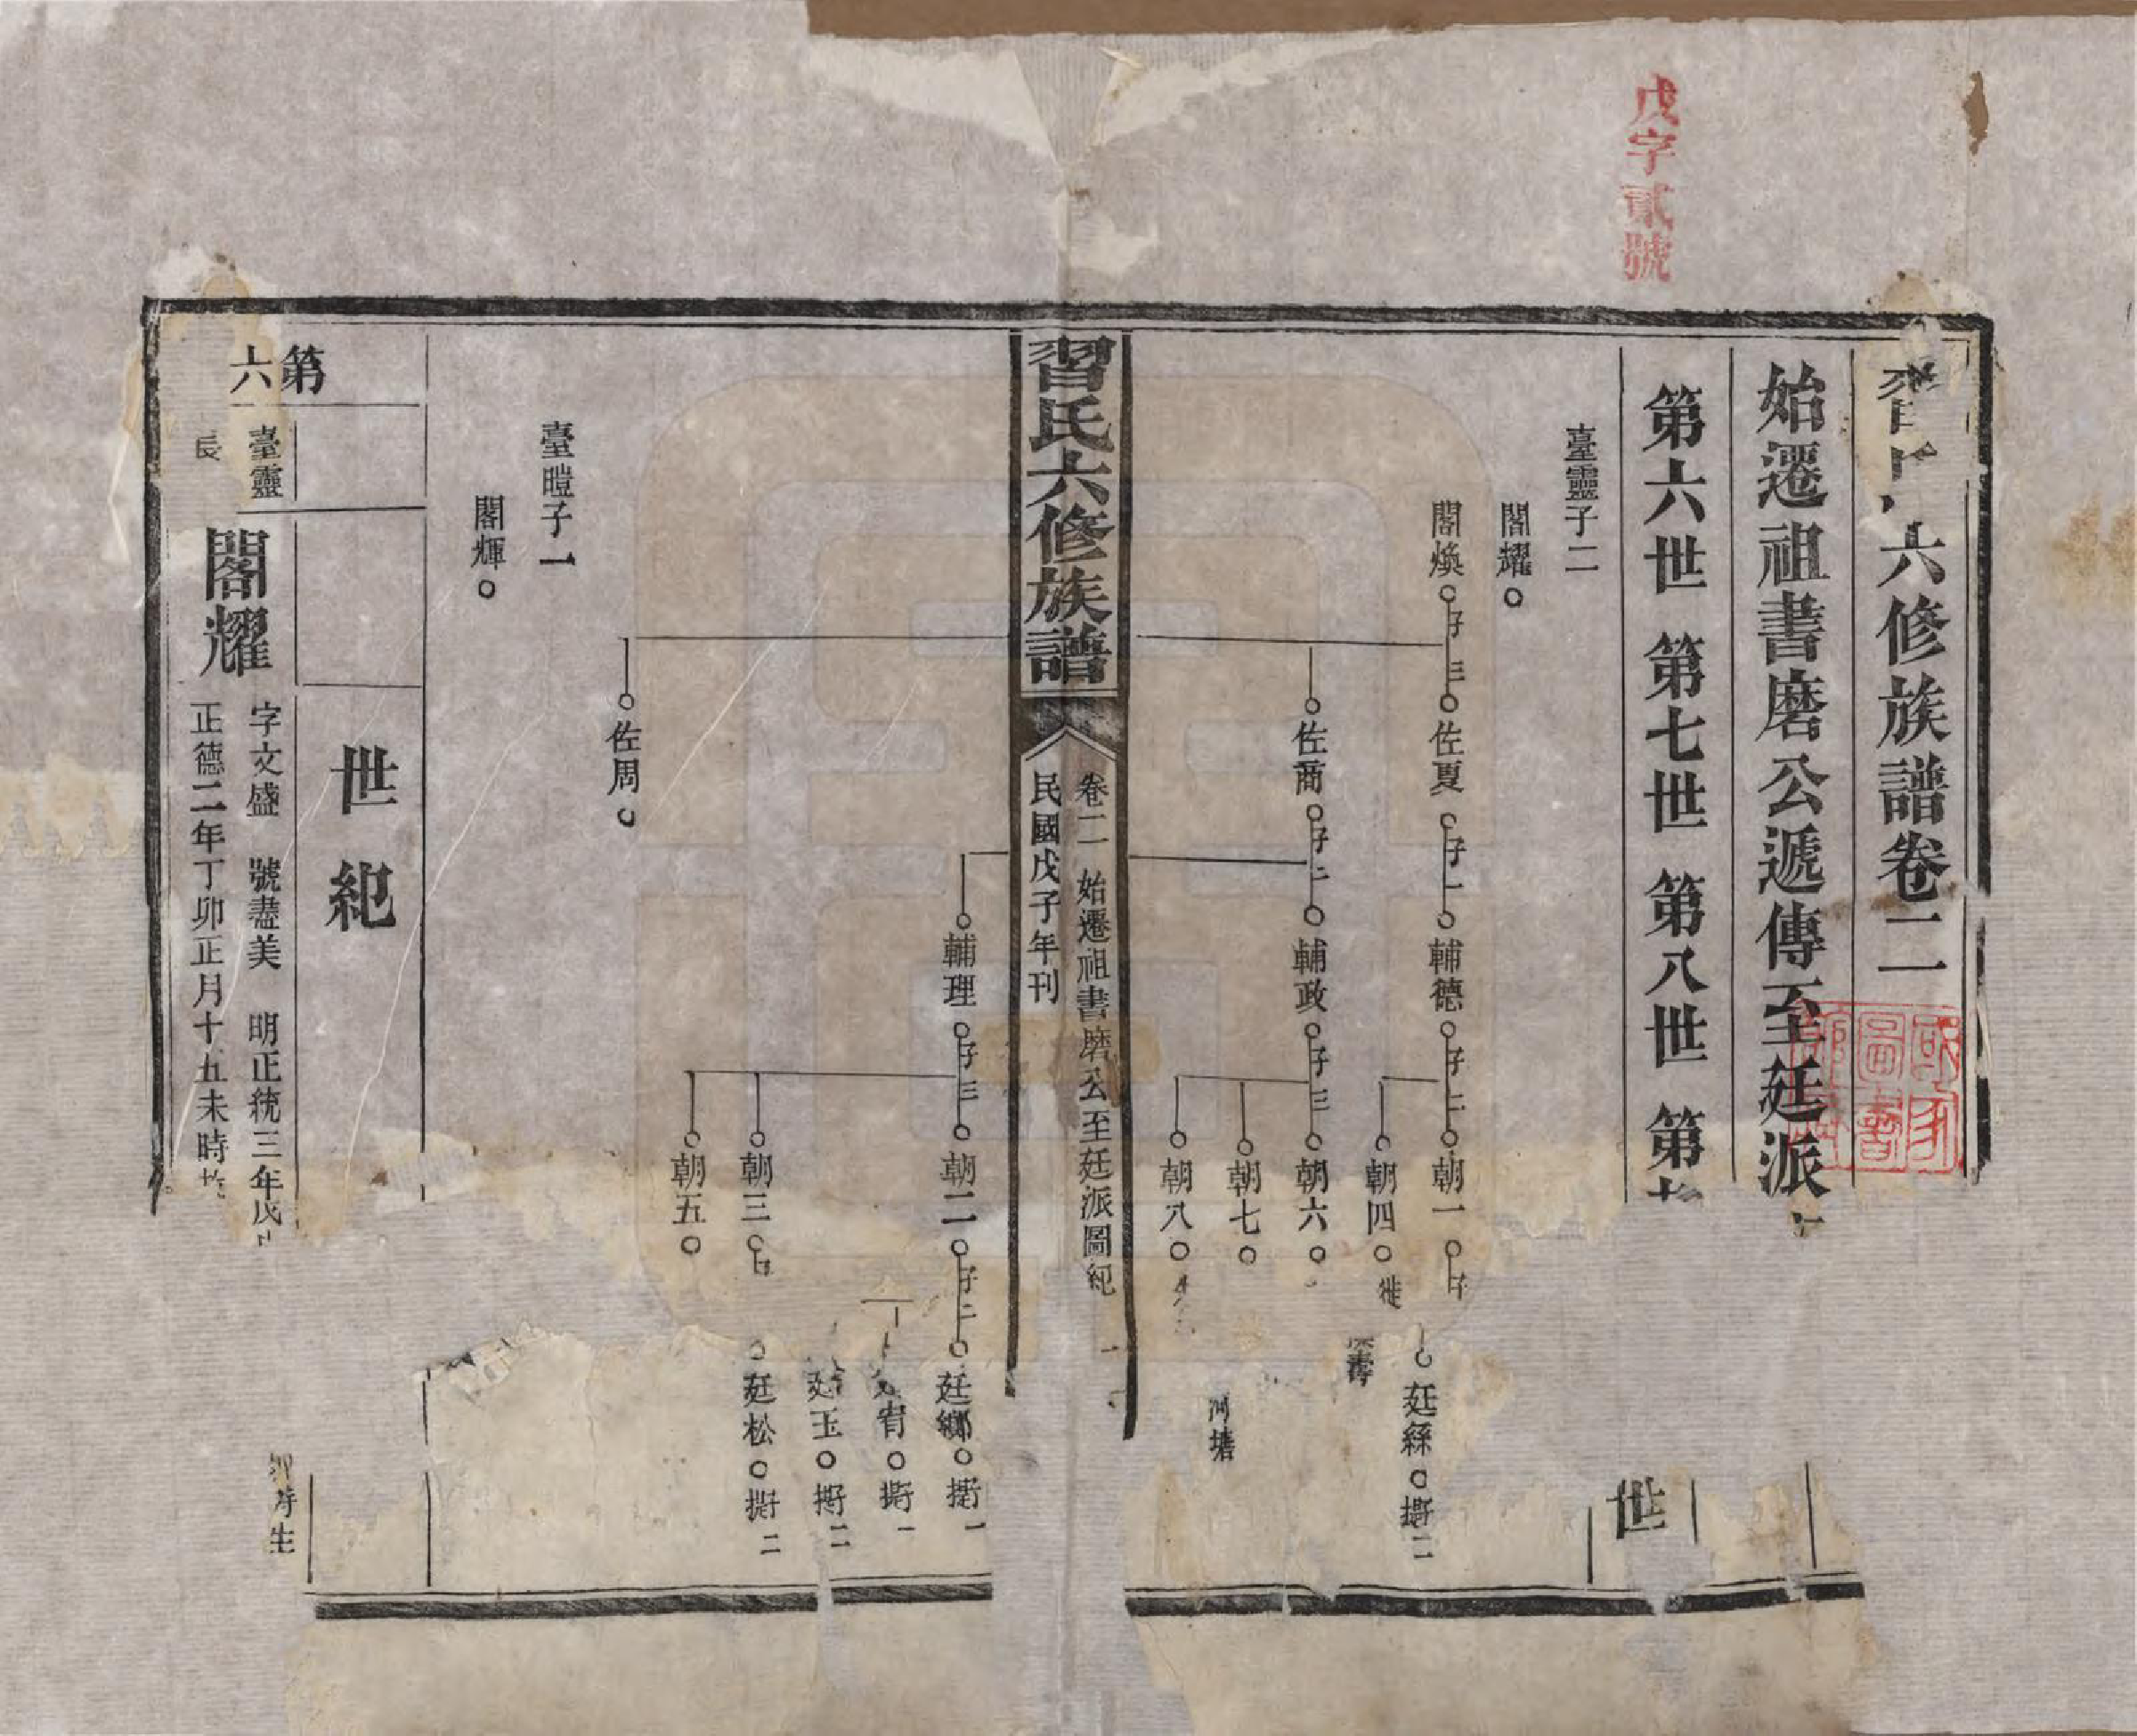 戊字貳號
習氏六修族譜卷二
始遷祖書磨公遞傳至廷派
第六世 第七世 第八世 第
世
臺靈子二
閣耀
閣煥 子三 佐夏 子一 輔德 子二 朝一 子
廷縣 撕二
朝四 徙
佐商 子二 輔政 子三 朝六
朝七
河塘
朝八
習氏六修族譜
卷二 始遷祖書磨公至廷派圖紀 一
民國戊子年刊
輔理 子三 朝二 子二 廷鄉 撕一
撕一
玉 撕二
朝三
廷松 撕二
朝五
佐周
臺暟子一
閣輝
世紀
第六
臺靈
長
閣耀
字文盛 號盡美 明正統三年戊
正德二年丁卯正月十五未時
時生